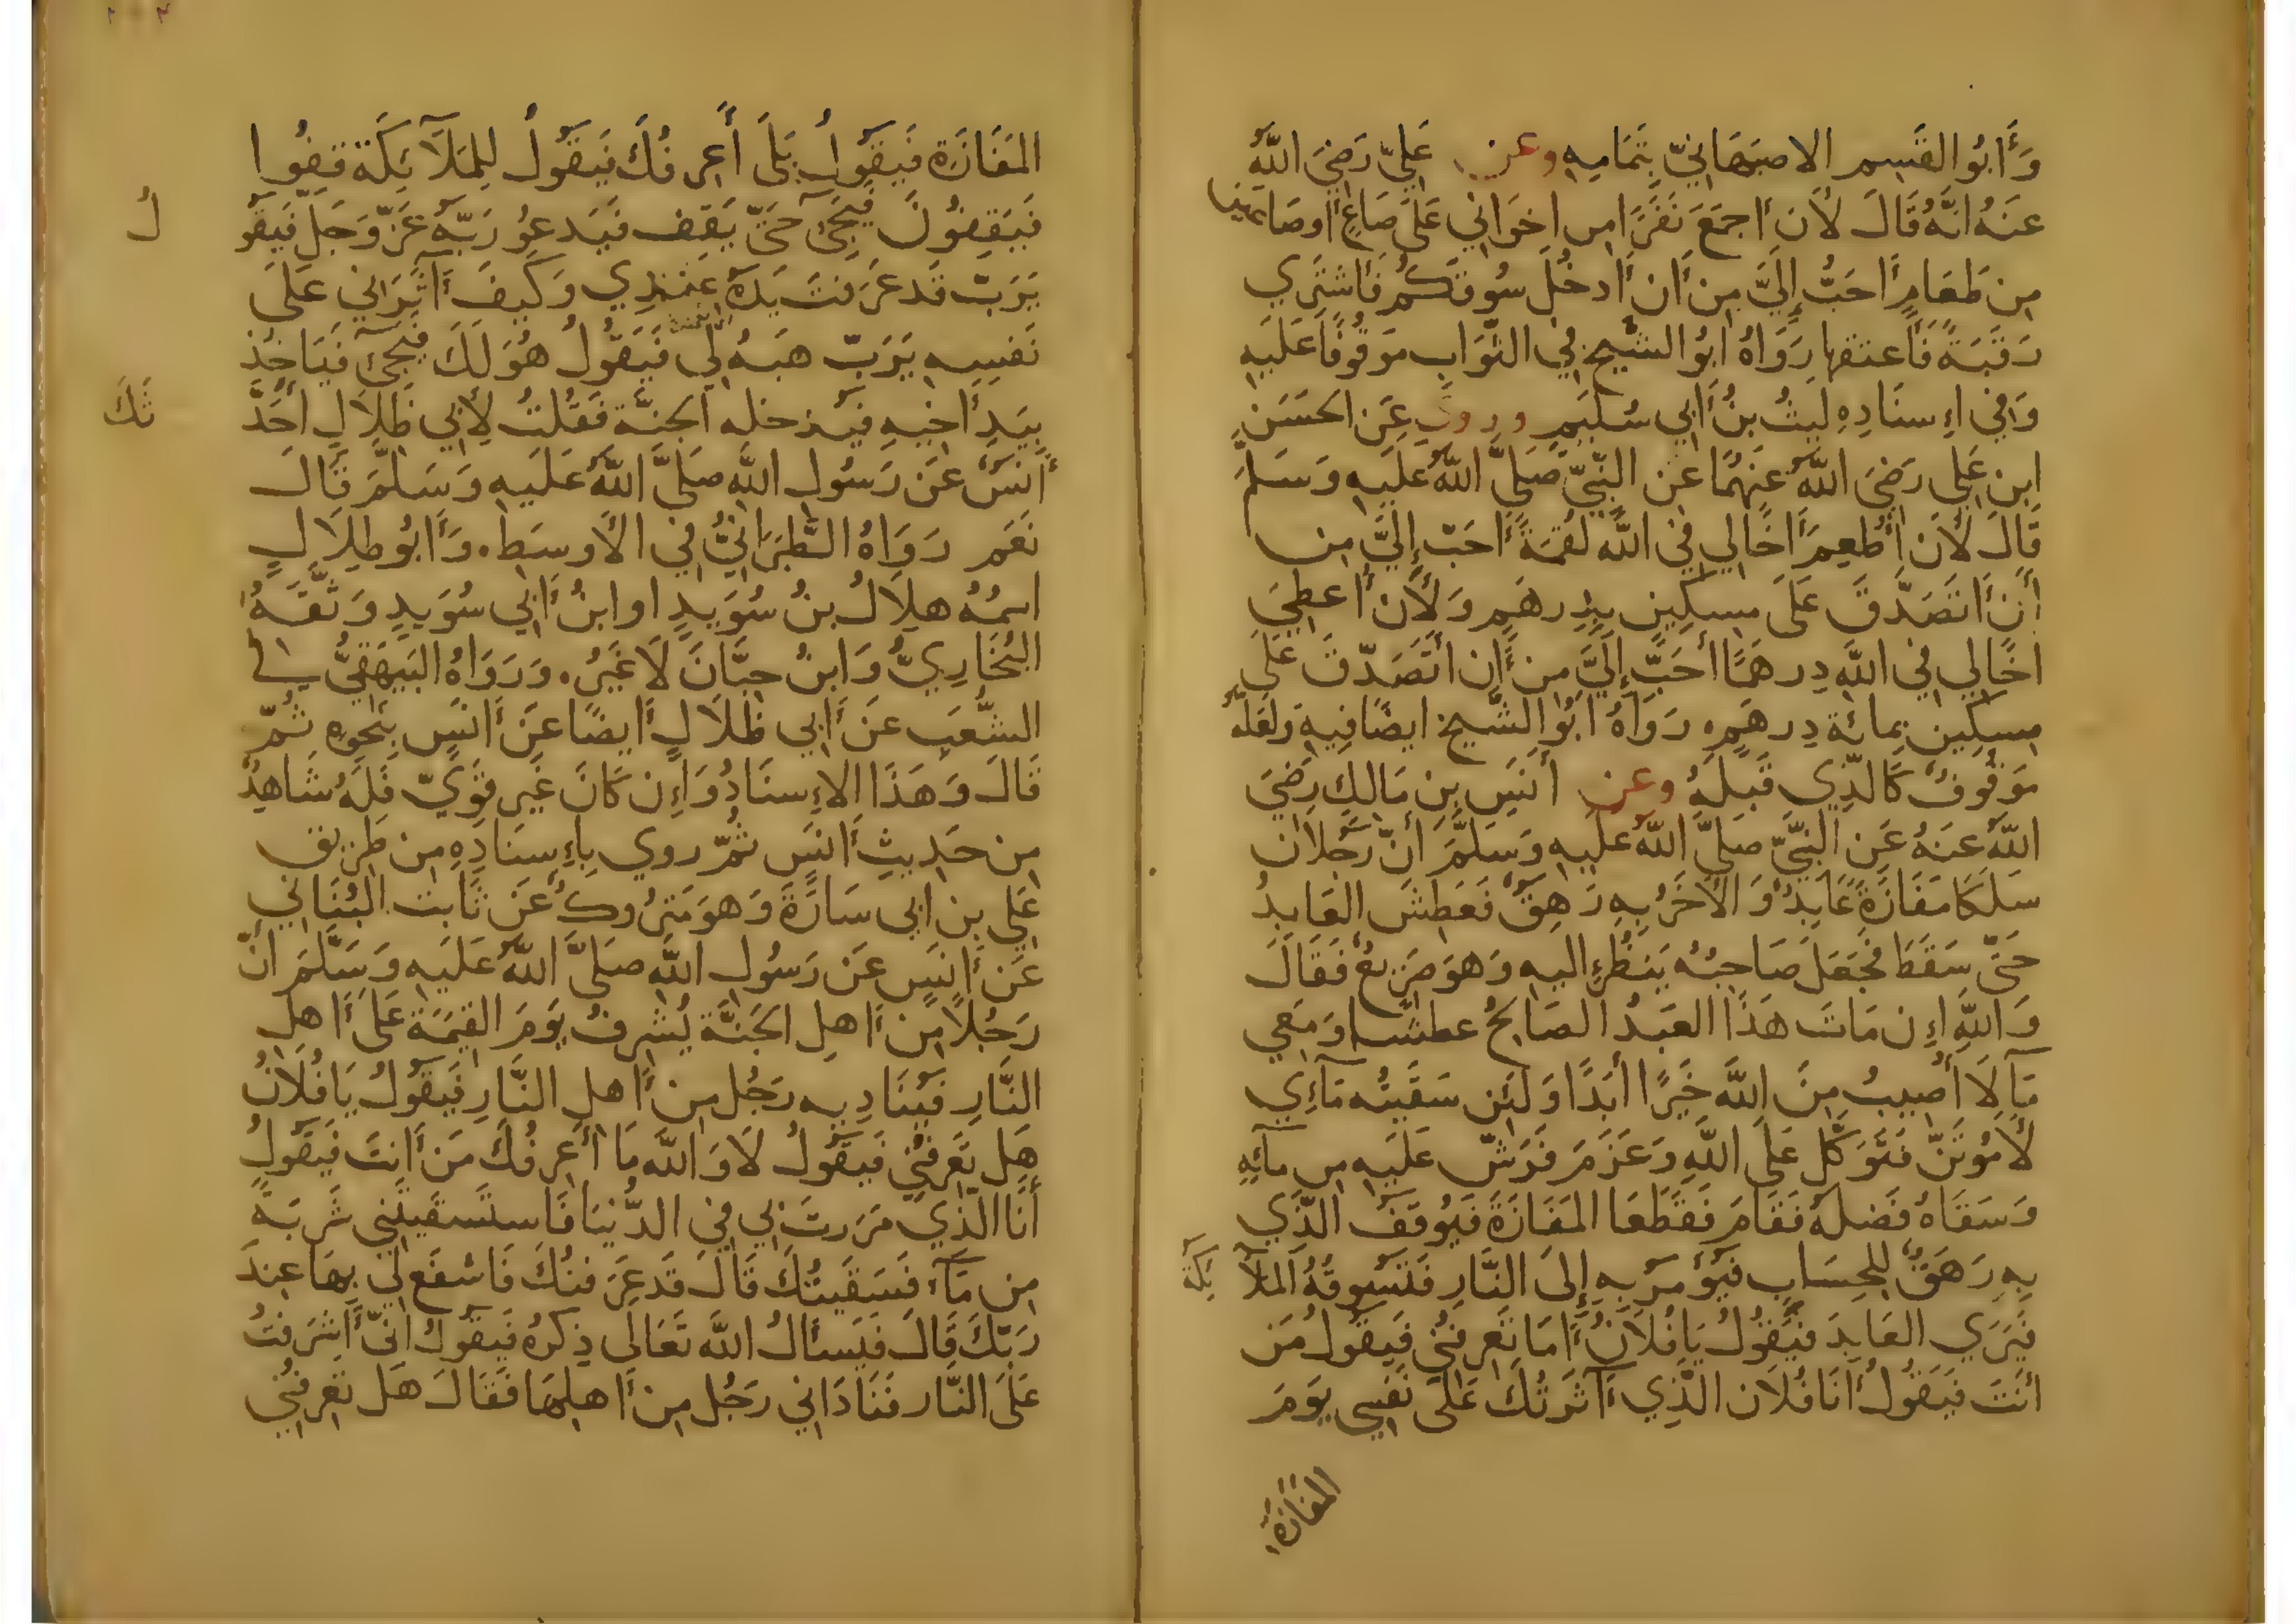 وَأَبُو القَسِم الاصبَهَانِيّ بِتَمَامِهِ وعن عَلِيّ رَضِيَ اللَّهُ
عَنهُ انَّهُ قَالَ لَأَن أَجمَعَ نَفَرًا مِن اِخوَانِي عَلَى صَاعٍ أَو صَاعَين
مِن طَعَامٍ أَحَبُّ إِلَيَّ مِن أَن أَدخُلَ سُوقَكُم فَأَشتَرِي
رَقَبَةً فَأَعتقها رَوَاهُ أَبُو الشَّيخ فِي الثَّوَابِ مَوقُوفًا عَلَيهِ
وَفِي إِسنَادِهِ لَيثُ بنُ أَبِي سُلَيمٍ وروي عَن الحَسَنِ
ابنِ عَلِي رَضِيَ اللَّهُ عَنهُمَا عَنِ النَّبِيّ صَلَّى اللَّهُ عَلَيهِ وَسَلَّمَ
قَالَ لَأَن أُطعِمَ أَخًا لِي فِي اللَّه لُقمَةً أَحَبّ إِلَيَّ مِن
أَن أَتَصَدَّقَ عَلَى مِسكِينٍ بِدِرهَمٍ وَلَأَن أُعطِيَ
أَخًا لِي فِي اللَّهِ دِرهَمًا أَحَبّ إِلَيَّ مِن أَن أَتَصَدّقَ عَلَى
مِسكِينٍ بِمائَة دِرهَمٍ رَوَاهُ أَبُو الشَّيخ ايضًا فِيهِ وَلَعَلّهُ
مَوقُوفٌ كَالَّذِي قَبلَهُ وعن أَنَسِ بنِ مَالِكٍ رَضِيَ
اللَّهُ عَنهُ عَنِ النَّبِيّ صَلَّى اللَّهُ عَلَيهِ وَسَلَّمَ أَنّ رَجُلَان
سَلَكَا مَفَازَةً عَابِدٌ وَالأَخَرُ بِهِ رَهَقٌ فَعَطِشَ العَابِدُ
حَتَّى سَقَطَ فَجَعَلَ صَاحِبُهُ يَنظُر اليهِ وَهوَ صَرِيعٌ فَقَالَ
وَاللَّهِ إِن مَاتَ هَذَا العَبدُ الصَالحُ عطشًا وَمَعِي
مَآ لَا أُصِيبُ مِنَ اللَّه خَيرًا أَبَدًا وَلَئِن سَقَيتُه مَآءِي
لَأَمُوتَنّ فَتَوَكَّلَ عَلَى اللَّهِ وَعَزَمَ فَرَشّ عَلَيهِ مِن مائِهِ
وَسَقَاهُ فَضلَهُ فَقَامَ فَقَطَعَا المَفَازَةَ فَيُوقَفُ الَّذِي
بِهِ رَهَقٌ لِلحِسَابِ فَيُؤمَر بِهِ إِلَى النَّارِ فَتَسُوقُهُ المَلَا ئِكَة
فَيَرَي العَابِدَ فَيَقُولُ يَا فُلَانُ أَمَا تَعرِفُنِي فَيَقُولُ مَن
أَنتَ فَيَقُولُ أَنَا فُلَان الَّذِي آثَرتُكَ عَلَى نَفسِي يَومَ
المَفَازَة
المَفَازَة فَيَقُولُ بَلَى أَعرِفُكَ فَيَقُولُ لِلمَلَآئِكَة قِفُوا
فَيَقِفُونَ فَيَجِيُ حَتَّى يَقِف فَيَدعُو رَبّهُ عَزّ وَجَلّ فَيَقُو لُ
يَرَبّ قَد عَرَفتَ يَدَهُ عِندِي وَكَيفَ آثَرَانِي عَلَى
نَفسِهِ يَرَبّ هَبهُ لِي فَيَقُولُ هُوَ لَكَ فَيَجِئُ فَيَاخُذ
بِيَدِ أَخِيهِ فَيُدخله الجَنَّة فَقُلتُ لِأَبِي ظِلَالٍ أَحَدَّ ثَكَ
أَنَسٌ عَن رَسُولِ اللَّهِ صَلَّى اللَّهُ عَلَيهِ وَسَلَّمَ قَالَ
نَعَم رَوَاهُ الطَّبَرَانِيُّ فِي الأَوسَطِ. وَأَبُو ظِلَالٍ
اسمُهُ هِلَالُ بنُ سُوَيدٍ او ابنُ أَبِي سُوَيدٍ وَثَّقَهُ
البُخَارِيُّ وَابنُ حِبَّانَ لَا غَيرُ. وَرَوَاهُ البَيهَقِيُّ في
الشُّعَبِ عَن أَبِي ظِلَالٍ أَيضًا عَن أَنَسٍ بِنَحوِهِ ثُمّ
قَالَ وَهَذَا الإِسنَادُ وَإِن كَانَ غَيرَ قَوِيّ فَلَهُ شَاهِدٌ
مِن حَدِيثِ أَنَسٍ ثُمّ روي بِإِسنَادِهِ مِن طَرِيق
عَلِي بن ابي سَارَةَ وَهوَ مَتروكٌ عَن ثَابت البُنَانِي
عَن أَنَسٍ عَن رَسُولِ اللَّهِ صَلَّى اللَّهُ عَلَيهِ وَسَلَّمَ انّ
رَجُلًا مِن أَهلِ الجَنَّة يُشرِفُ يَومَ القِيَمَةِ عَلَى أَهلِ
النَّارِ فَيُنَادِيهِ رَجُل مِن أَهلِ النَّارِ فَيَقُولُ يَا فُلَانُ
هَل تَعرِفُنِي فَيَقُولُ لَا وَاللَّه مَا أَعرِفُكَ مَن أَنتَ فَيَقُولُ
أَنَا الَّذِي مَرَرتَ بِي فِي الدُّنيَا فَاستَسقَيتَنِي شَربَةً
مِن مَآءٍ فَسَقَيتُكَ قَالَ قَد عَرَفتُكَ فَاشفَع لِي بِهَا عِندَ
رَبّكَ قَالَ فَيَسأَلُ اللَّه تَعَالَى ذِكرُهُ فَيَقُولُ انِّي أَشرَفتُ
عَلَى النَّار فَنَادَانِي رَجُل مِن أَهلِهَا فَقَالَ هَل تَعرِفُنِي